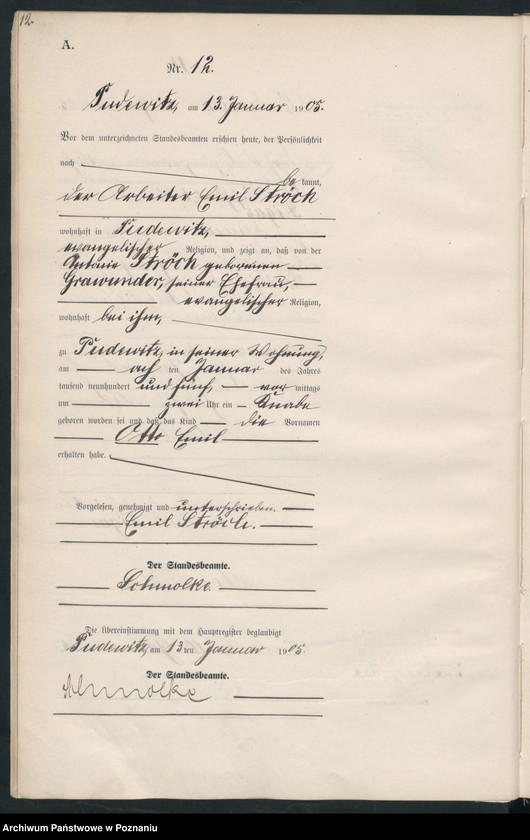 12.
A.
Nr. 12.
Pudewitz, am 13. Januar 1905.
Vor dem unterzeichneten Standesbeamten erschien heute, der Persönlichkeit
nach be kannt,
der Arbeiter Emil Ströck
wohnhaft in Pudewitz,
evangelischer Religion, und zeigte an, daß von der
Antonie Ströck geborenen
Grawunder, seiner Ehefrau,
evangelischer Religion,
wohnhaft bei ihm,
zu Pudewitz, in seiner Wohnung,
am ach ten Januar des Jahres
tausend neunhundert und fünf vor mittags
um zwei Uhr ein Knabe
geboren worden sei und daß das Kind die Vornamen
Otto Emil
erhalten habe.
Vorgelesen, genehmigt und unterschrieben.
Emil Ströck.
Der Standesbeamte.
Schmolke
Die Übereinstimmung mit dem Hauptregister beglaubigt
Pudewitz, am 13 ten Januar 1905.
Der Standesbeamte.
Schmolke
Archiwum Państwowe w Poznaniu